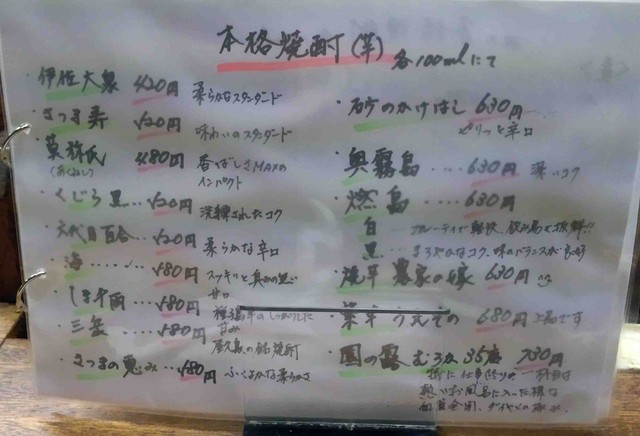 本格焼酎(芋) 各100mlにて
伊佐大泉 420円 柔らかなスタンダード
さつま寿 520円 味わいのスタンダード
莫祢氏 480円 香ばしさMAXの
(あくねし) インパクト
くじら 黒… 520円 洗練されたコク
六代目百合… 520円 柔らかな辛口
海… 580円 スッキリと真みの
甘口
しま千両… 580円
甘み
三岳… 580円 屋久島の銘焼酎
さつまの恵み… 580円 ふくよかな柔らかさ
砂のかけはし 630円
ピリッと辛口
奥霧島… 630円 深いコク
燃島… 630円
白 フルーティで軽快、飲み易さ抜群!!
黒… まろやかなコク、味のバランスが良好
焼芋 農家の嫁 630円
紫芋 うえぞの 680円 上品です
園の露 むろか 35度 730円
特に仕事終りの一杯目は
熱いお風呂に入った様な